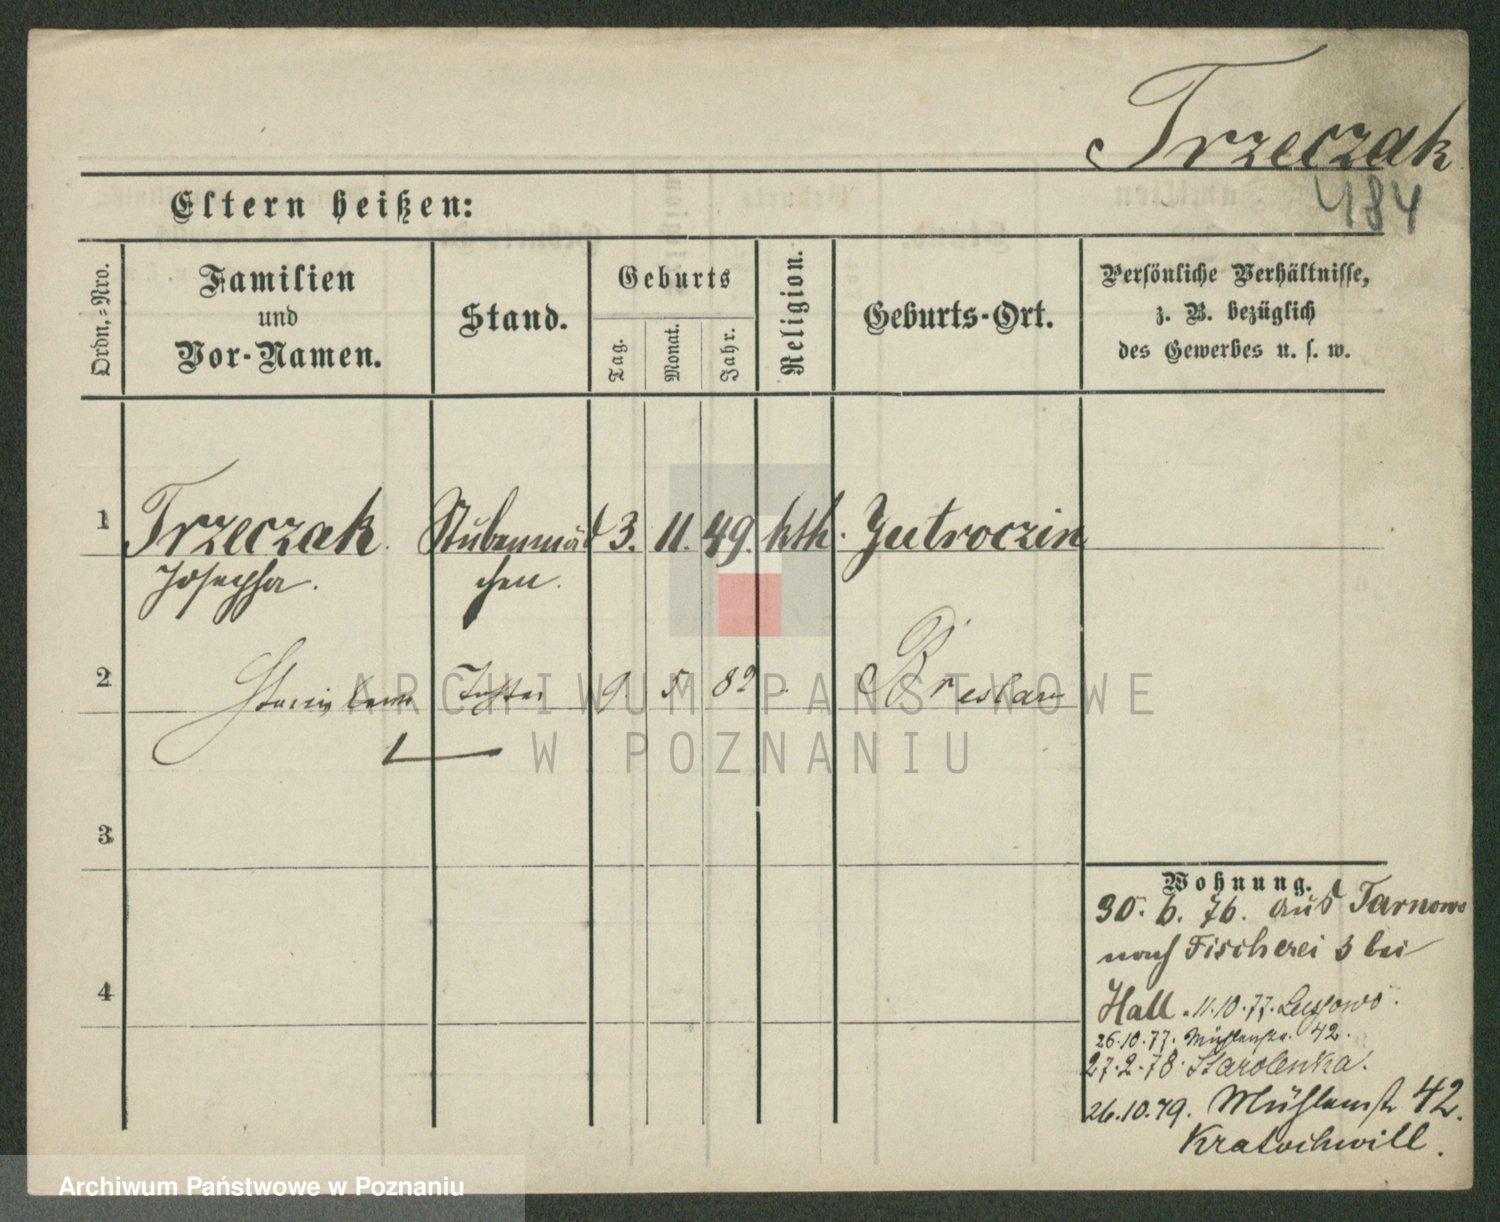 Trzeczak
484
Eltern heißen:
Ordn.=Nro.
Familien
und
Vor-Namen.
Stand.
Geburts
Tag.
Monat.
Jahr.
Religion.
Geburts-Ort.
Persönliche Verhältnisse,
z. B. bezüglich
des Gewerbes u. s. w.
1 Trzeczak Stubenmäd 3. 11. 49. kth. Jutroczin
Josepha. chen.
2 Stanislawa Tochter 9. 5. 82 Breslau
3
4
Wohnung.
30. 6. 76. aus Tarnowo
nach Fischerei 3 bei
Hall. 11.10.77. Lussowo.
26.10.77. Mühlenstr. 42.
27.2.78. Starolenka.
26.10.79. Mühlenstr 42.
Kratochwill.
ARCHIWUM PAŃSTWOWE
W POZNANIU
Archiwum Państwowe w Poznaniu